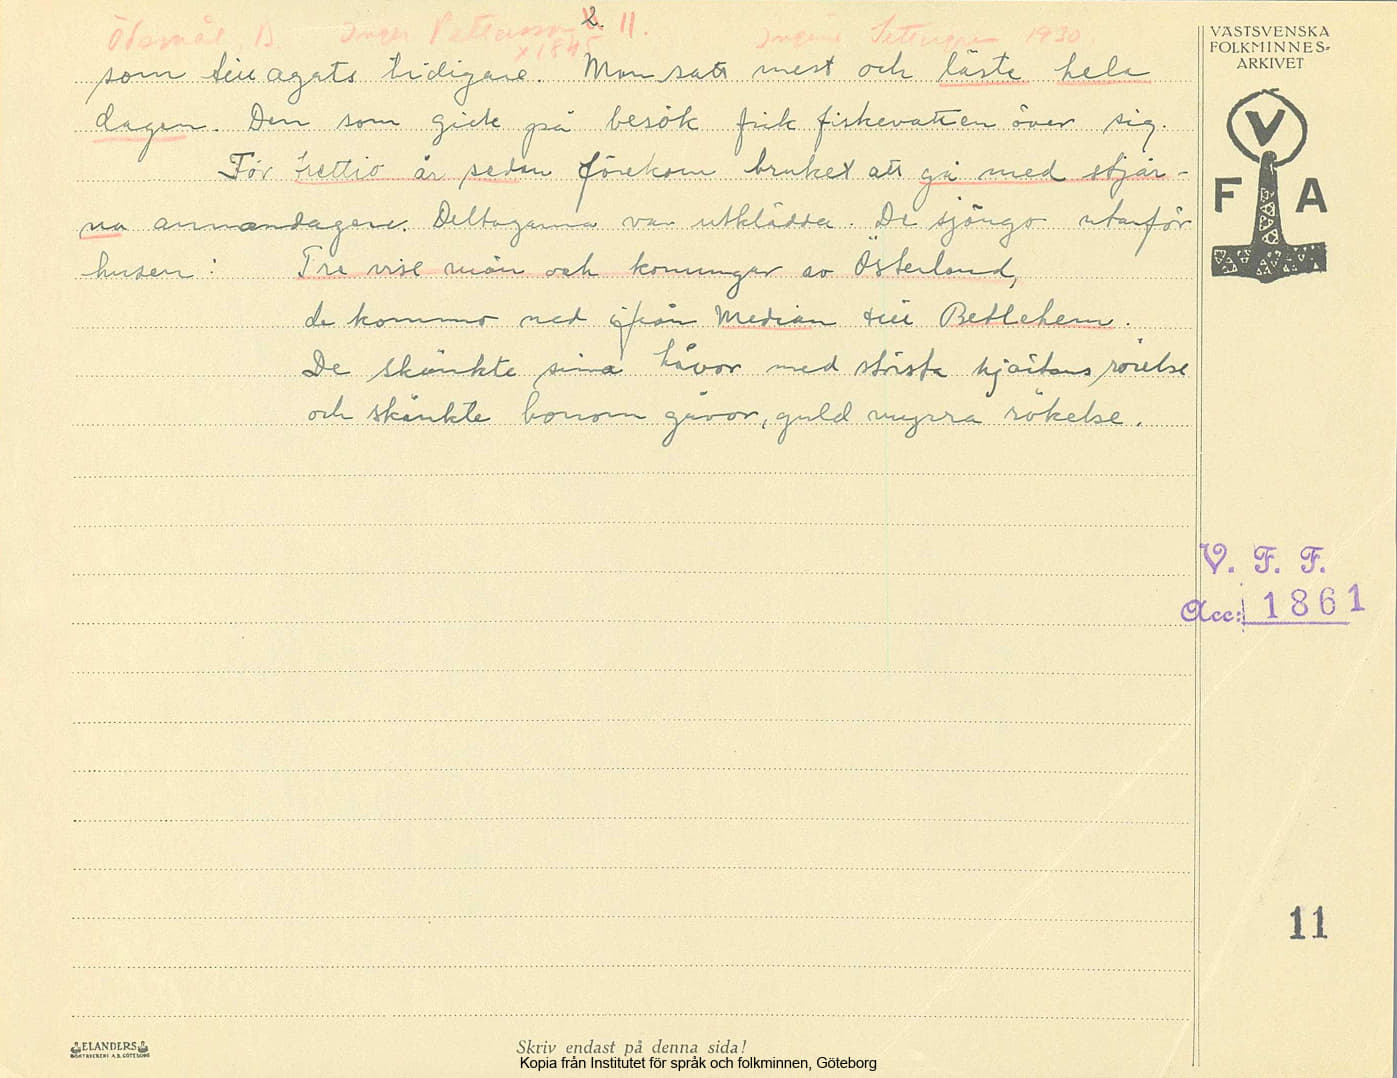 2. 11.
Ödsmål, B Inger Pettersson Ingeri 1930.
x 1845
som tillagats tidigare. Man satt mest och läste hela
dagen. Den som gick på besök fick fiskevatten över sig.
För trettio år sedan förekom bruket att gå med stjär-
na annandagen. Deltagarna var utklädda. De sjöngo utanför
husen: Tre vise män och konungar av Österland,
de kommo ned ifrån Median till Betlehem.
De skänkte sina håvor med största hjärtans rörelse
och skänkte honom gåvor, guld myrra rökelse.
VÄSTSVENSKA
FOLKMINNES-
ARKIVET
V
F A
V. F. F.
Acc: 1861
11
ELANDERS
BOKTRYCKERI A.B. GÖTEBORG
Skriv endast på denna sida!
Kopia från Institutet för språk och folkminnen, Göteborg